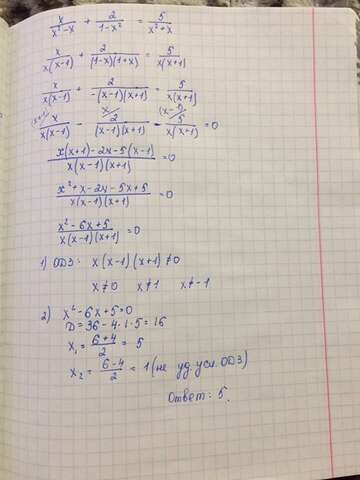 x/(x²-x) + 2/(1-x²) = 5/(x²+x)
x/(x(x-1)) + 2/((1-x)(1+x)) = 5/(x(x+1))
x/(x(x-1)) + 2/(-(x-1)(x+1)) = 5/(x(x+1))
(x+1)/ x/(x(x-1)) - x/ 2/((x-1)(x+1)) - (x-1)/ 5/(x(x+1)) = 0
(x(x+1)-2x-5(x-1))/(x(x-1)(x+1)) = 0
(x²+x-2x-5x+5)/(x(x-1)(x+1)) = 0
(x²-6x+5)/(x(x-1)(x+1)) = 0
1) ОДЗ: x(x-1)(x+1)≠0
x≠0 x≠1 x≠-1
2) x²-6x+5=0
D=36-4·1·5=16
x₁ = (6+4)/2 = 5
x₂ = (6-4)/2 = 1 (не уд. усл. ОДЗ)
Ответ: 5.